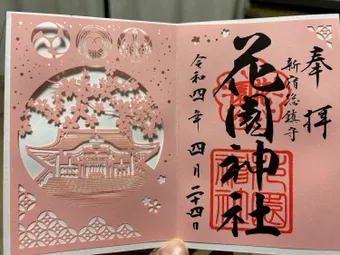 奉拝
新宿総鎮守
花園神社
令和四年 四月二十四日